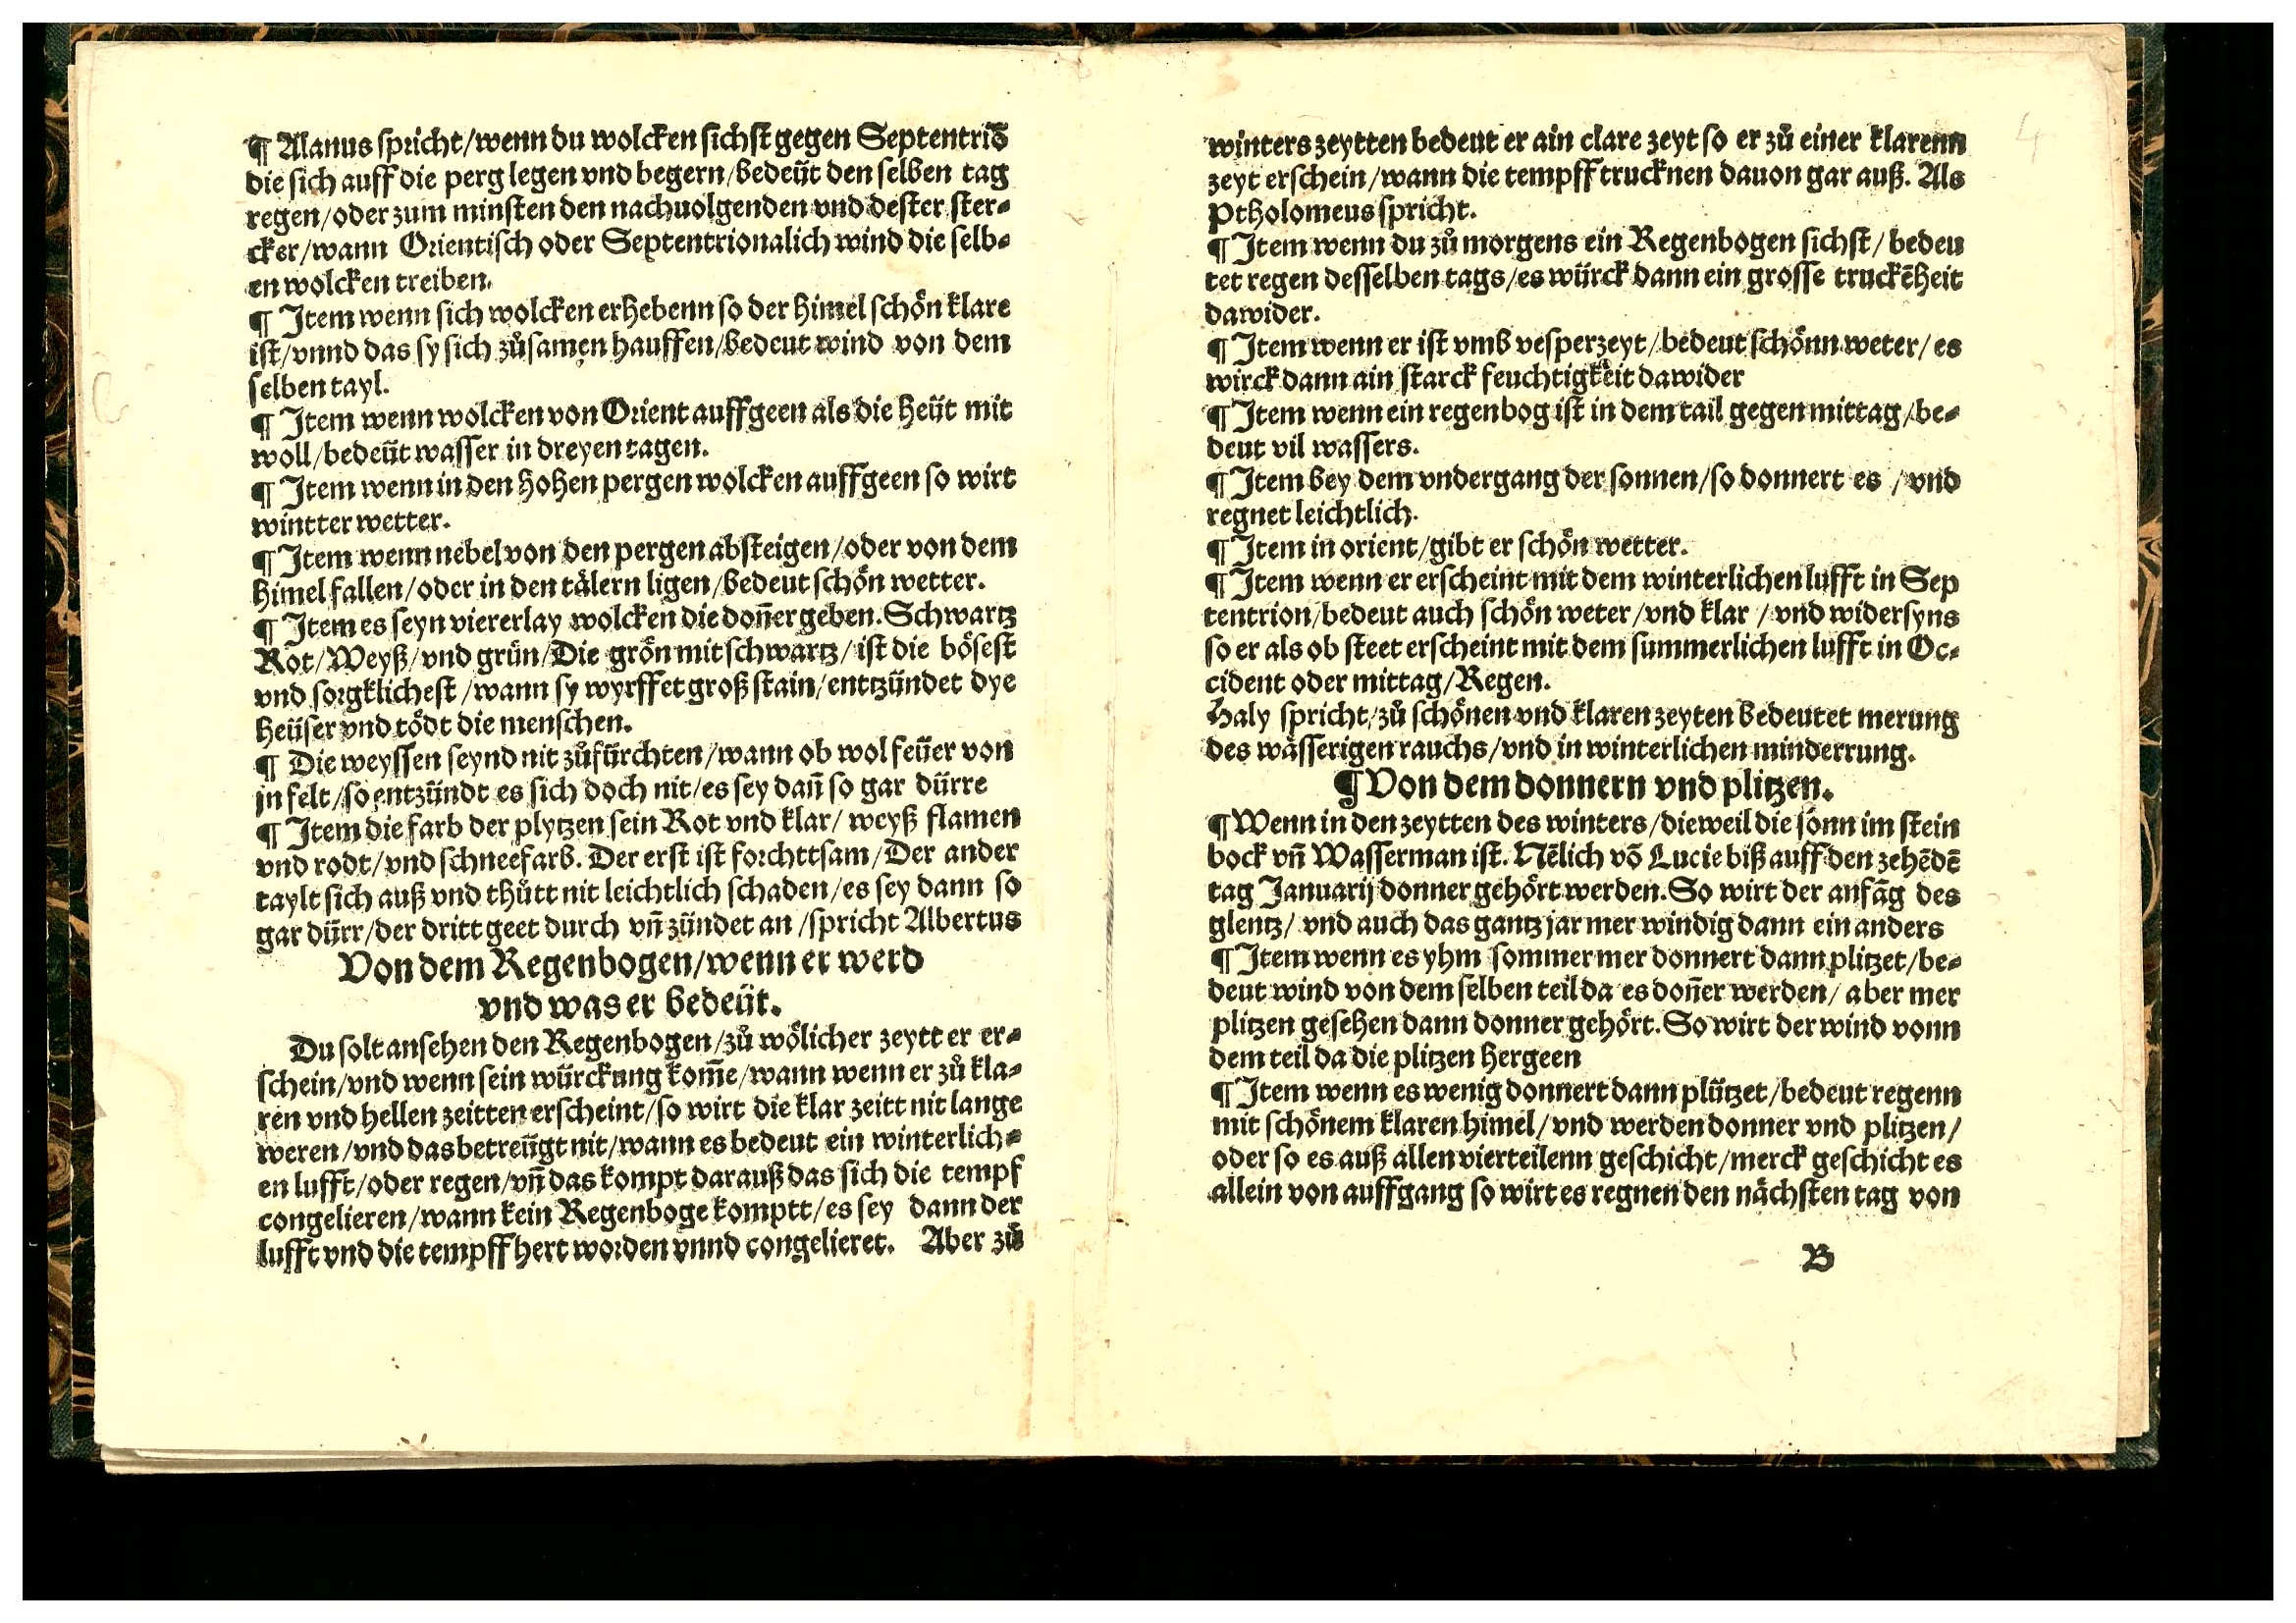 ¶ Alanus spricht/wenn du wolcken sichst gegen Septentriō
die sich auff die perg legen vnd begern/bedeüt den selben tag
regen/oder zum minsten den nachuolgenden vnd dester ster⸗
cker/wann Orientisch oder Septentrionalich wind die selb⸗
en wolcken treiben.
¶ Item wenn sich wolcken erhebenn so der himel schön klare
ist/vnnd das sy sich zůsamen hauffen/bedeut wind von dem
selben tayl.
¶ Item wenn wolcken von Orient auffgeen als die heüt mit
woll/bedeüt wasser in dreyen tagen.
¶ Item wenn in den hohen pergen wolcken auffgeen so wirt
wintter wetter.
¶ Item wenn nebel von den pergen absteigen/oder von dem
himel fallen/oder in den tälern ligen/bedeut schön wetter.
¶ Item es seyn viererlay wolcken die don̄er geben. Schwartz
Rot/Weyß/vnd grün/Die grön mit schwartz/ist die bösest
vnd sorgklichest/wann sy wyrffet groß stain/entzündet dye
heüser vnd tödt die menschen.
¶ Die weyssen seynd nit zůfürchten/wann ob wol feüer von
jn felt/so entzündt es sich doch nit/es sey dan̄ so gar dürre
¶ Item die farb der plytzen sein Rot vnd klar/ weyß flamen
vnd rodt/vnd schneefarb. Der erst ist forchttsam/Der ander
taylt sich auß vnd thůtt nit leichtlich schaden/es sey dann so
gar dürr/der dritt geet durch vn̄ zündet an/spricht Albertus
Von dem Regenbogen/wenn er werd
vnd was er bedeüt.
Du solt ansehen den Regenbogen/zů wölicher zeytt er er⸗
schein/vnd wenn sein würckung kom̄e/wann wenn er zů kla⸗
ren vnd hellen zeitten erscheint/so wirt die klar zeitt nit lange
weren/vnd das betreügt nit/wann es bedeut ein winterlich⸗
en lufft/oder regen/vn̄ das kompt darauß das sich die tempf
congelieren/wann kein Regenboge komptt/es sey dann der
lufft vnd die tempff hert worden vnnd congelieret. Aber zů
winters zeytten bedeut er ain clare zeyt so er zů einer klarenn
zeyt erschein/wann die tempff trucknen dauon gar auß. Als
Ptholomeus spricht.
¶ Item wenn du zů morgens ein Regenbogen sichst/ bedeu
tet regen desselben tags/es würck dann ein grosse truckēheit
dawider.
¶ Item wenn er ist vmb vesperzeyt/bedeut schönn weter/es
wirck dann ain starck feuchtigkeit dawider
¶ Item wenn ein regenbog ist in dem tail gegen mittag/be⸗
deut vil wassers.
¶ Item bey dem vndergang der sonnen/so donnert es /vnd
regnet leichtlich.
¶ Item in orient/gibt er schön wetter.
¶ Item wenn er erscheint mit dem winterlichen lufft in Sep
tentrion/bedeut auch schön weter/vnd klar /vnd widersyns
so er als ob steet erscheint mit dem summerlichen lufft in Oc⸗
cident oder mittag/Regen.
Haly spricht/zů schönen vnd klaren zeyten bedeutet merung
des wässerigen rauchs/vnd in winterlichen minderrung.
¶ Von dem donnern vnd plitzen.
¶ Wenn in den zeytten des winters/dieweil die sonn im stein
bock vn̄ Wasserman ist. Nēlich vō Lucie biß auff den zehēdē
tag Januarij donner gehört werden. So wirt der anfāg des
glentz/ vnd auch das gantz jar mer windig dann ein anders
¶ Item wenn es yhm sommer mer donnert dann plitzet/be⸗
deut wind von dem selben teil da es don̄er werden/ aber mer
plitzen gesehen dann donner gehört. So wirt der wind vonn
dem teil da die plitzen hergeen
¶ Item wenn es wenig donnert dann plützet/bedeut regenn
mit schönem klaren himel/vnd werden donner vnd plitzen/
oder so es auß allen vierteilenn geschicht/merck geschicht es
allein von auffgang so wirt es regnen den nächsten tag von
B
4